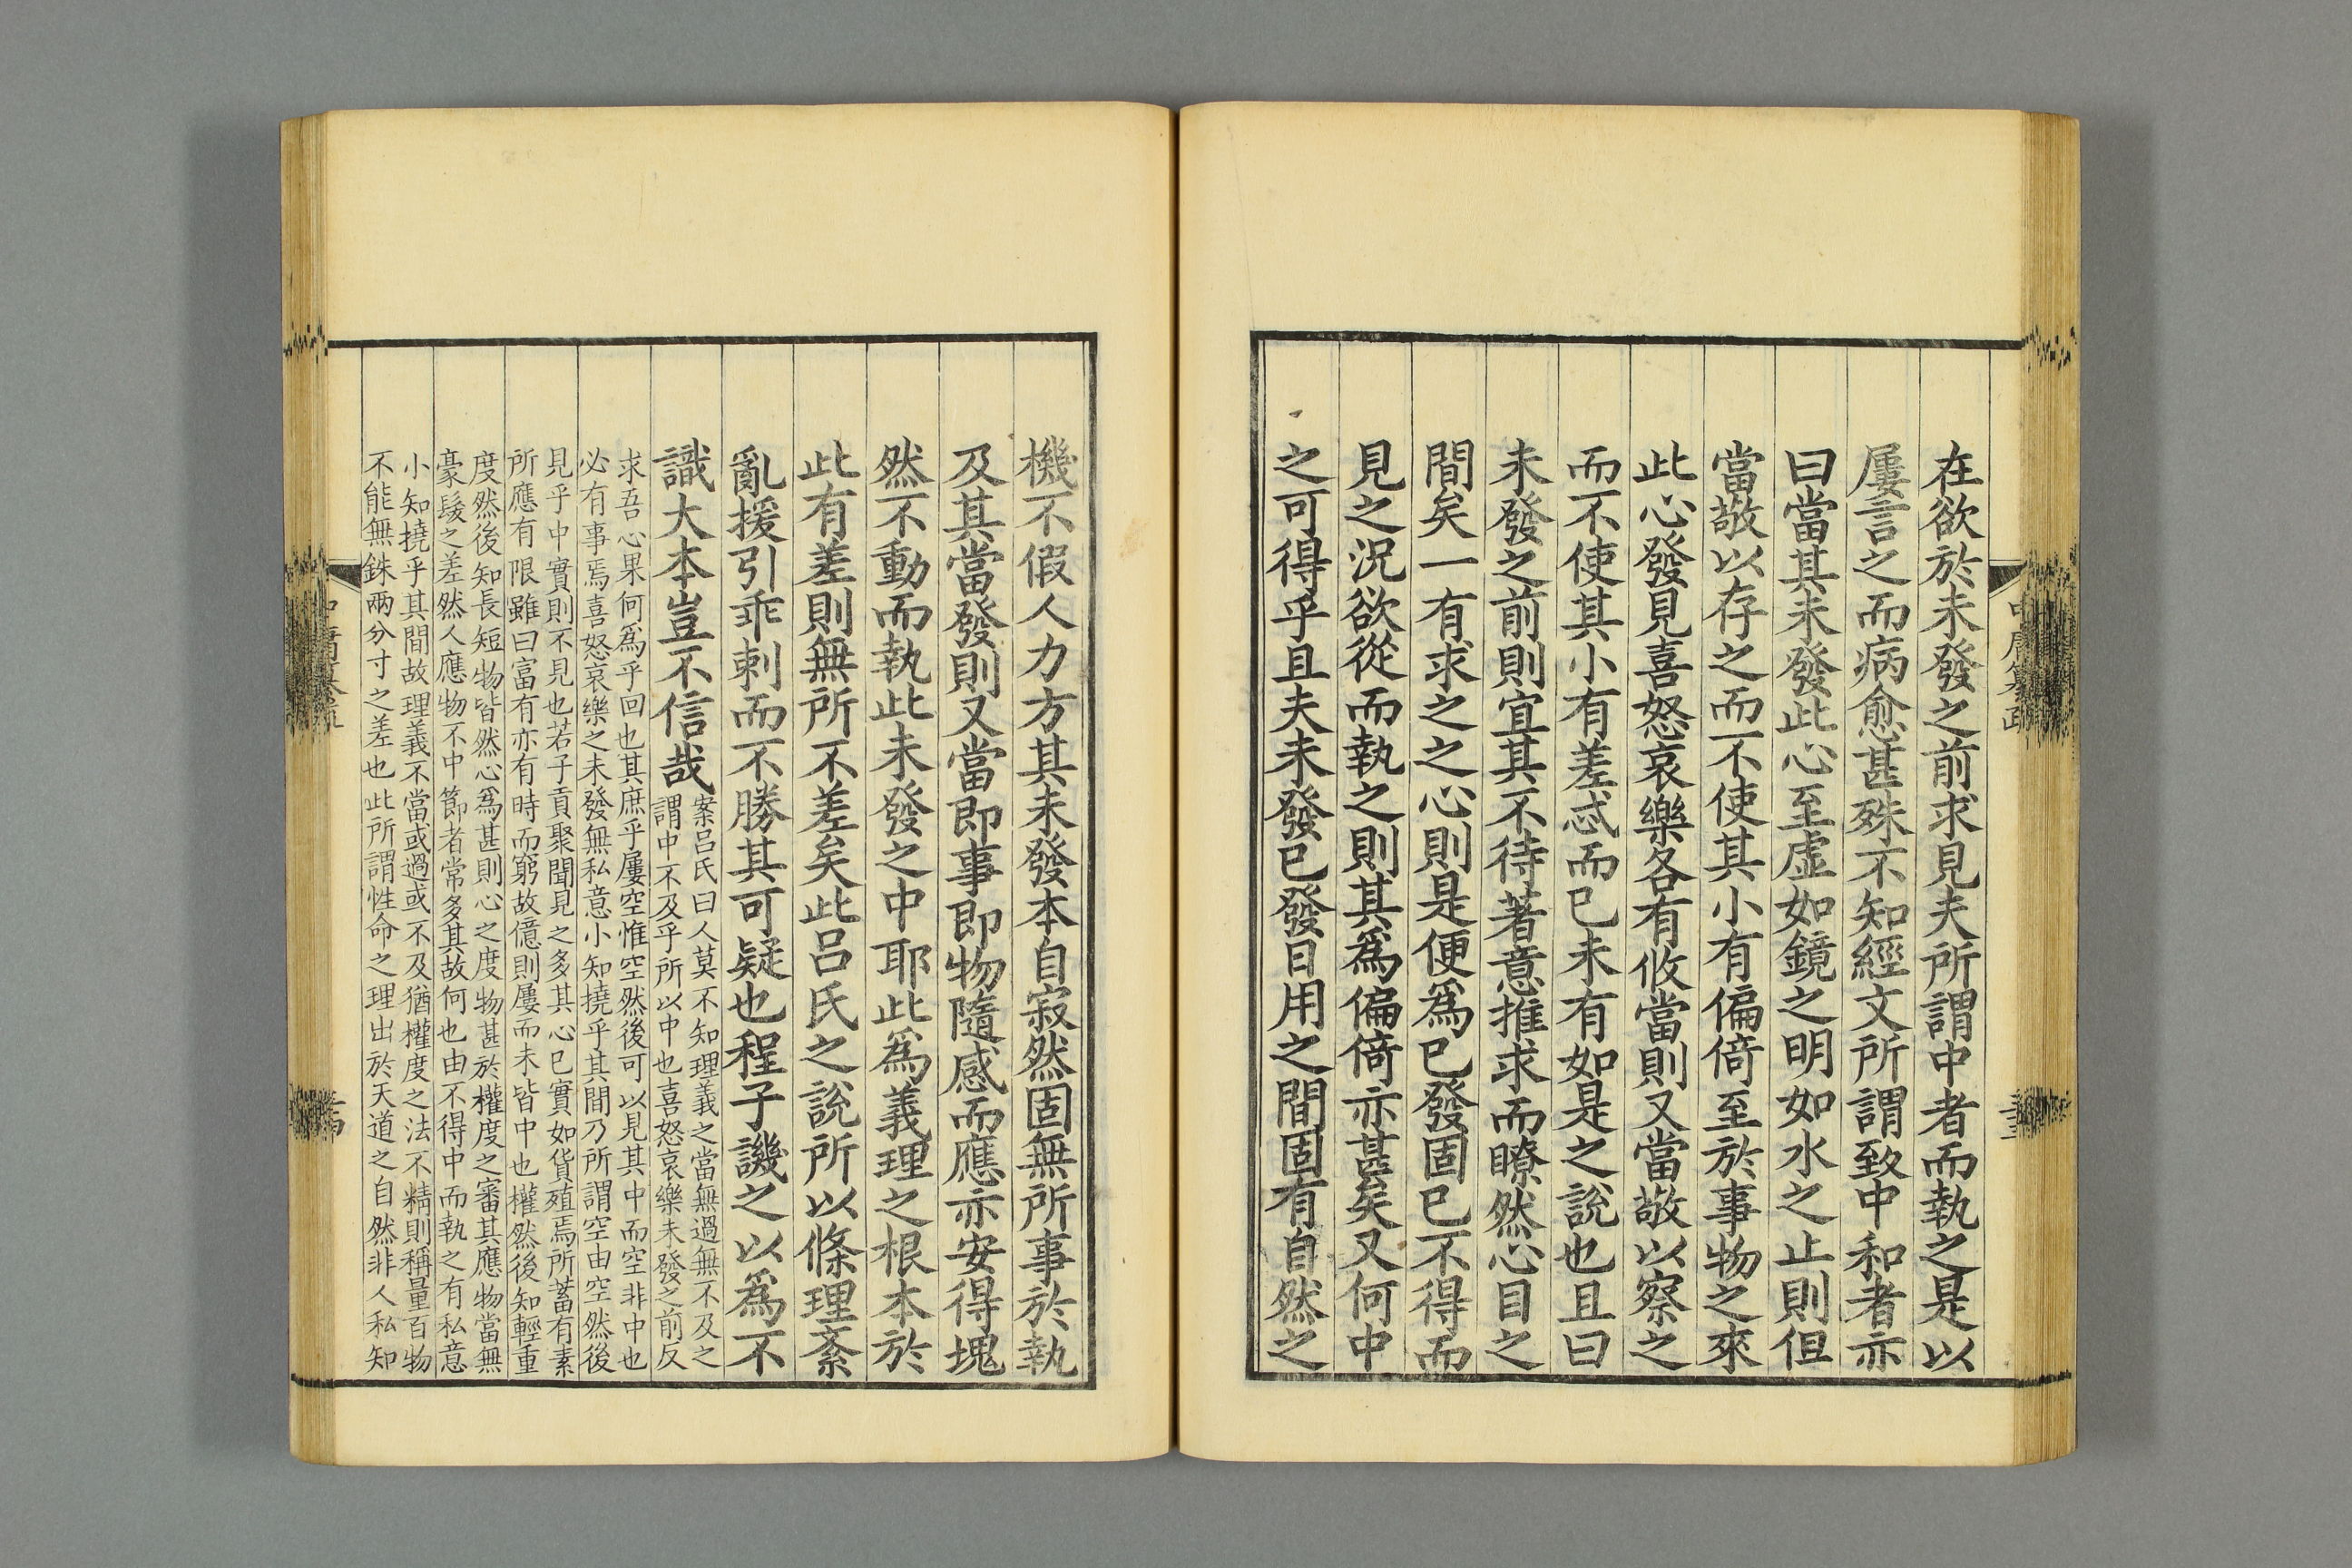 在欲於未發之前求見夫所謂中者而執之是以
屢言之而病愈甚殊不知經文所謂致中和者亦
曰當其未發此心至虛如鏡之明如水之止則但
當敬以存之而不使其小有偏倚至於事物之來
此心發見喜怒哀樂各有攸當則又當敬以察之
而不使其小有差忒而已未有如是之說也且曰
未發之前則宜其不待著意推求而瞭然心目之
間矣一有求之之心則是便爲已發固已不得而
見之況欲從而執之則其爲偏倚亦甚矣又何中
之可得乎且夫未發已發日用之間固有自然之
機不假人力方其未發本自寂然固無所事於執
及其當發則又當即事即物隨感而應亦安得塊
然不動而執此未發之中耶此爲義理之根本於
此有差則無所不差矣此呂氏之說所以條理紊
亂援引乖剌而不勝其可疑也程子譏之以爲不
識大本豈不信哉
案呂氏曰人莫不知理義之當無過無不及之
謂中不及乎所以中也喜怒哀樂未發之前反
求吾心果何爲乎回也其庶乎屢空惟空然後可以見其中而空非中也
必有事焉喜怒哀樂之未發無私意小知撓乎其間乃所謂空由空然後
見乎中實則不見也若子貢聚聞見之多其心已實如貨殖焉所蓄有素
所應有限雖曰富有亦有時而窮故億則屢而未皆中也權然後知輕重
度然後知長短物皆然心爲甚則心之度物甚於權度之審其應物當無
豪髮之差然人應物不中節者常多其故何也由不得中而執之有私意
小知撓乎其間故理義不當或過或不及猶權度之法不精則稱量百物
不能無銖兩分寸之差也此所謂性命之理出於天道之自然非人私知